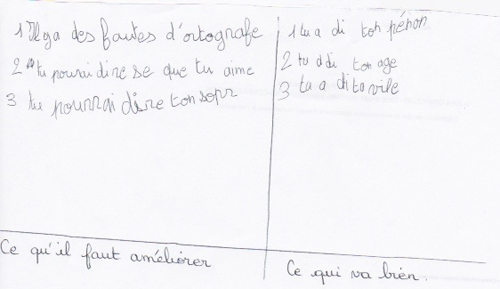 1 Il ga des fautes d'ortografe
2 tu pourai dire se que tu aime
3 tu pourrai dire ton sopr
Ce qu'il faut améliorer
1 tu a di ton pénon
2 tu a di ton age
3 tu a di ta vile
Ce qui va bien.